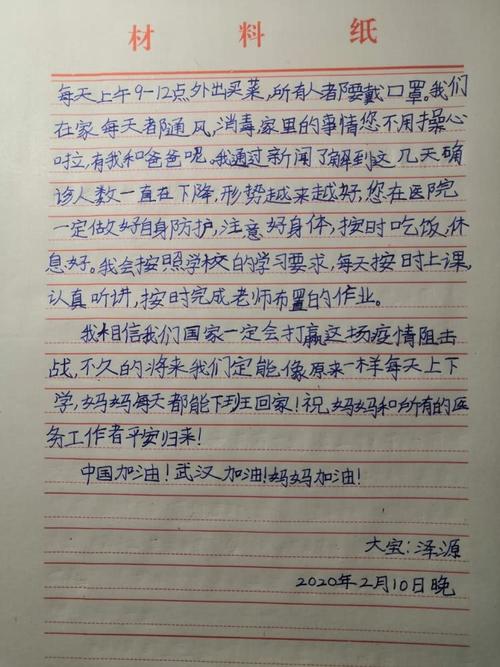 材料纸
每天上午9-12点外出买菜,所有人都要戴口罩。我们
在家每天都通风,消毒,家里的事情您不用操心
啦,有我和爸爸呢。我通过新闻了解到这几天确
诊人数一直在下降,形势越来越好,您在医院
一定做好自身防护,注意好身体,按时吃饭,休
息好。我会按照学校的学习要求,每天按时上课,
认真听讲,按时完成老师布置的作业。
我相信我们国家一定会打赢这场疫情阻击
战,不久的将来我们定能像原来一样每天上下
学,妈妈每天都能下班回家!祝妈妈和所有的医
务工作者平安归来!
中国加油!武汉加油!妈妈加油!
大宝:泽源
2020年2月10日晚